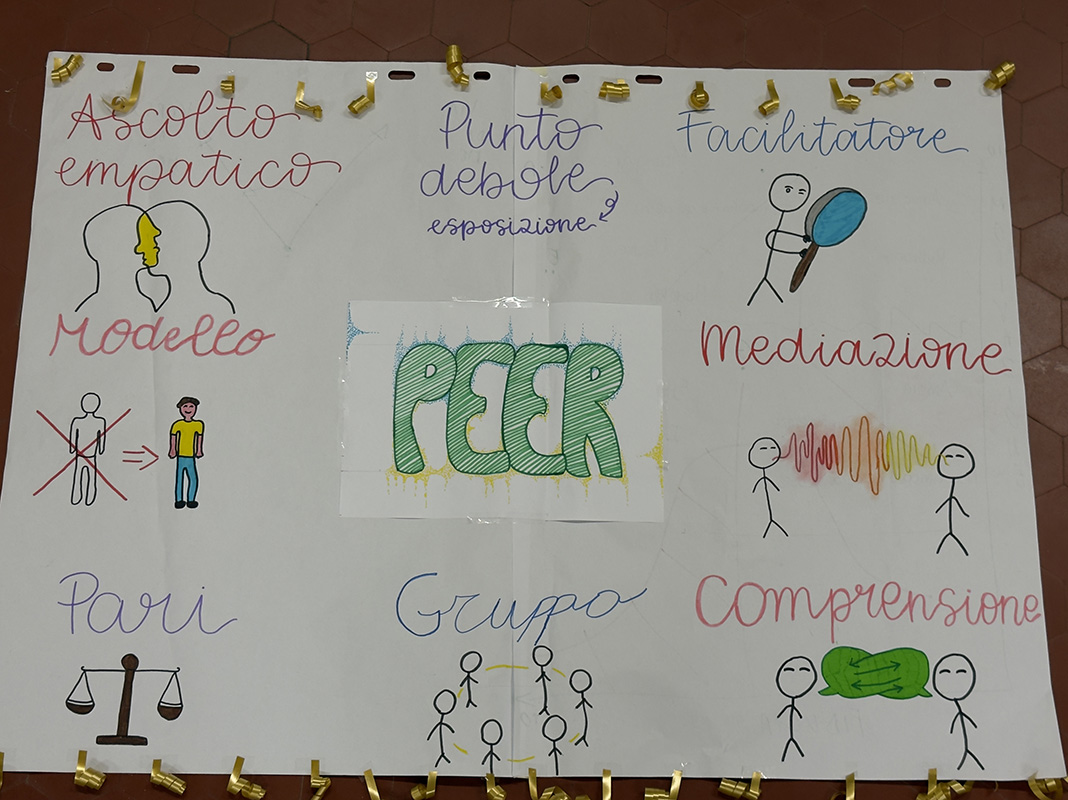 Ascolto
empatico
Punto
debole
esposizione
Facilitatore
Modello
PEER
Mediazione
Pari
Gruppo
Comprensione